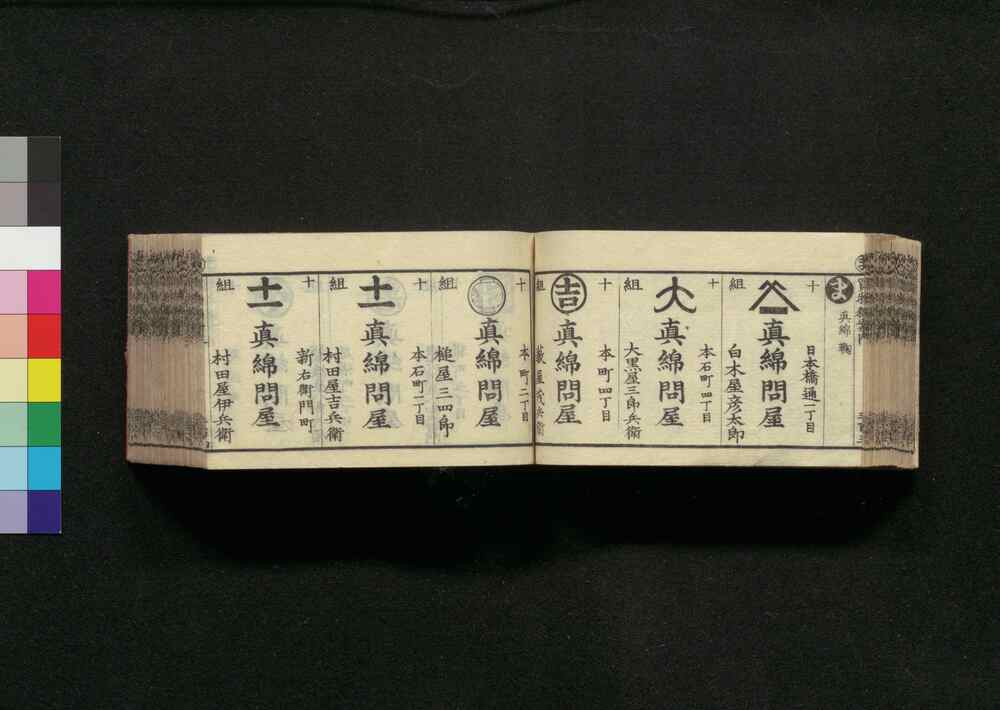 ま
真綿 鞠
十
日本橋通一丁目
真綿問屋
組
白木屋彦太郎
十
本石町四丁目
大
真綿問屋
組
大黒屋三郎兵衛
十
本町四丁目
吉
真綿問屋
組
十
本町二丁目
真綿問屋
組
槌屋三四郎
十
本石町一丁目
十一
真綿問屋
組
村田屋吉兵衛
十
新右衛門町
十一
真綿問屋
組
村田屋伊兵衛